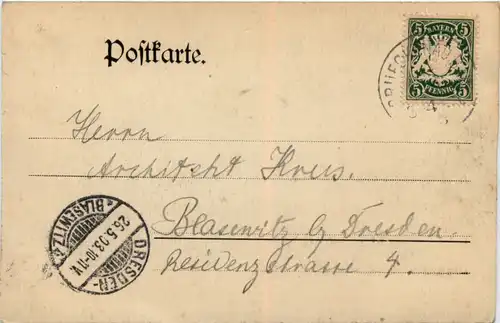 Postkarte.
BAYERN
5 5
5 PFENNIG 5
Herrn
Architekt Kreis.
Blasewitz b/ Dresden.
Residenzstrasse 4.
DRESDEN-
BLASEWITZ
26.5.03.10-11V.